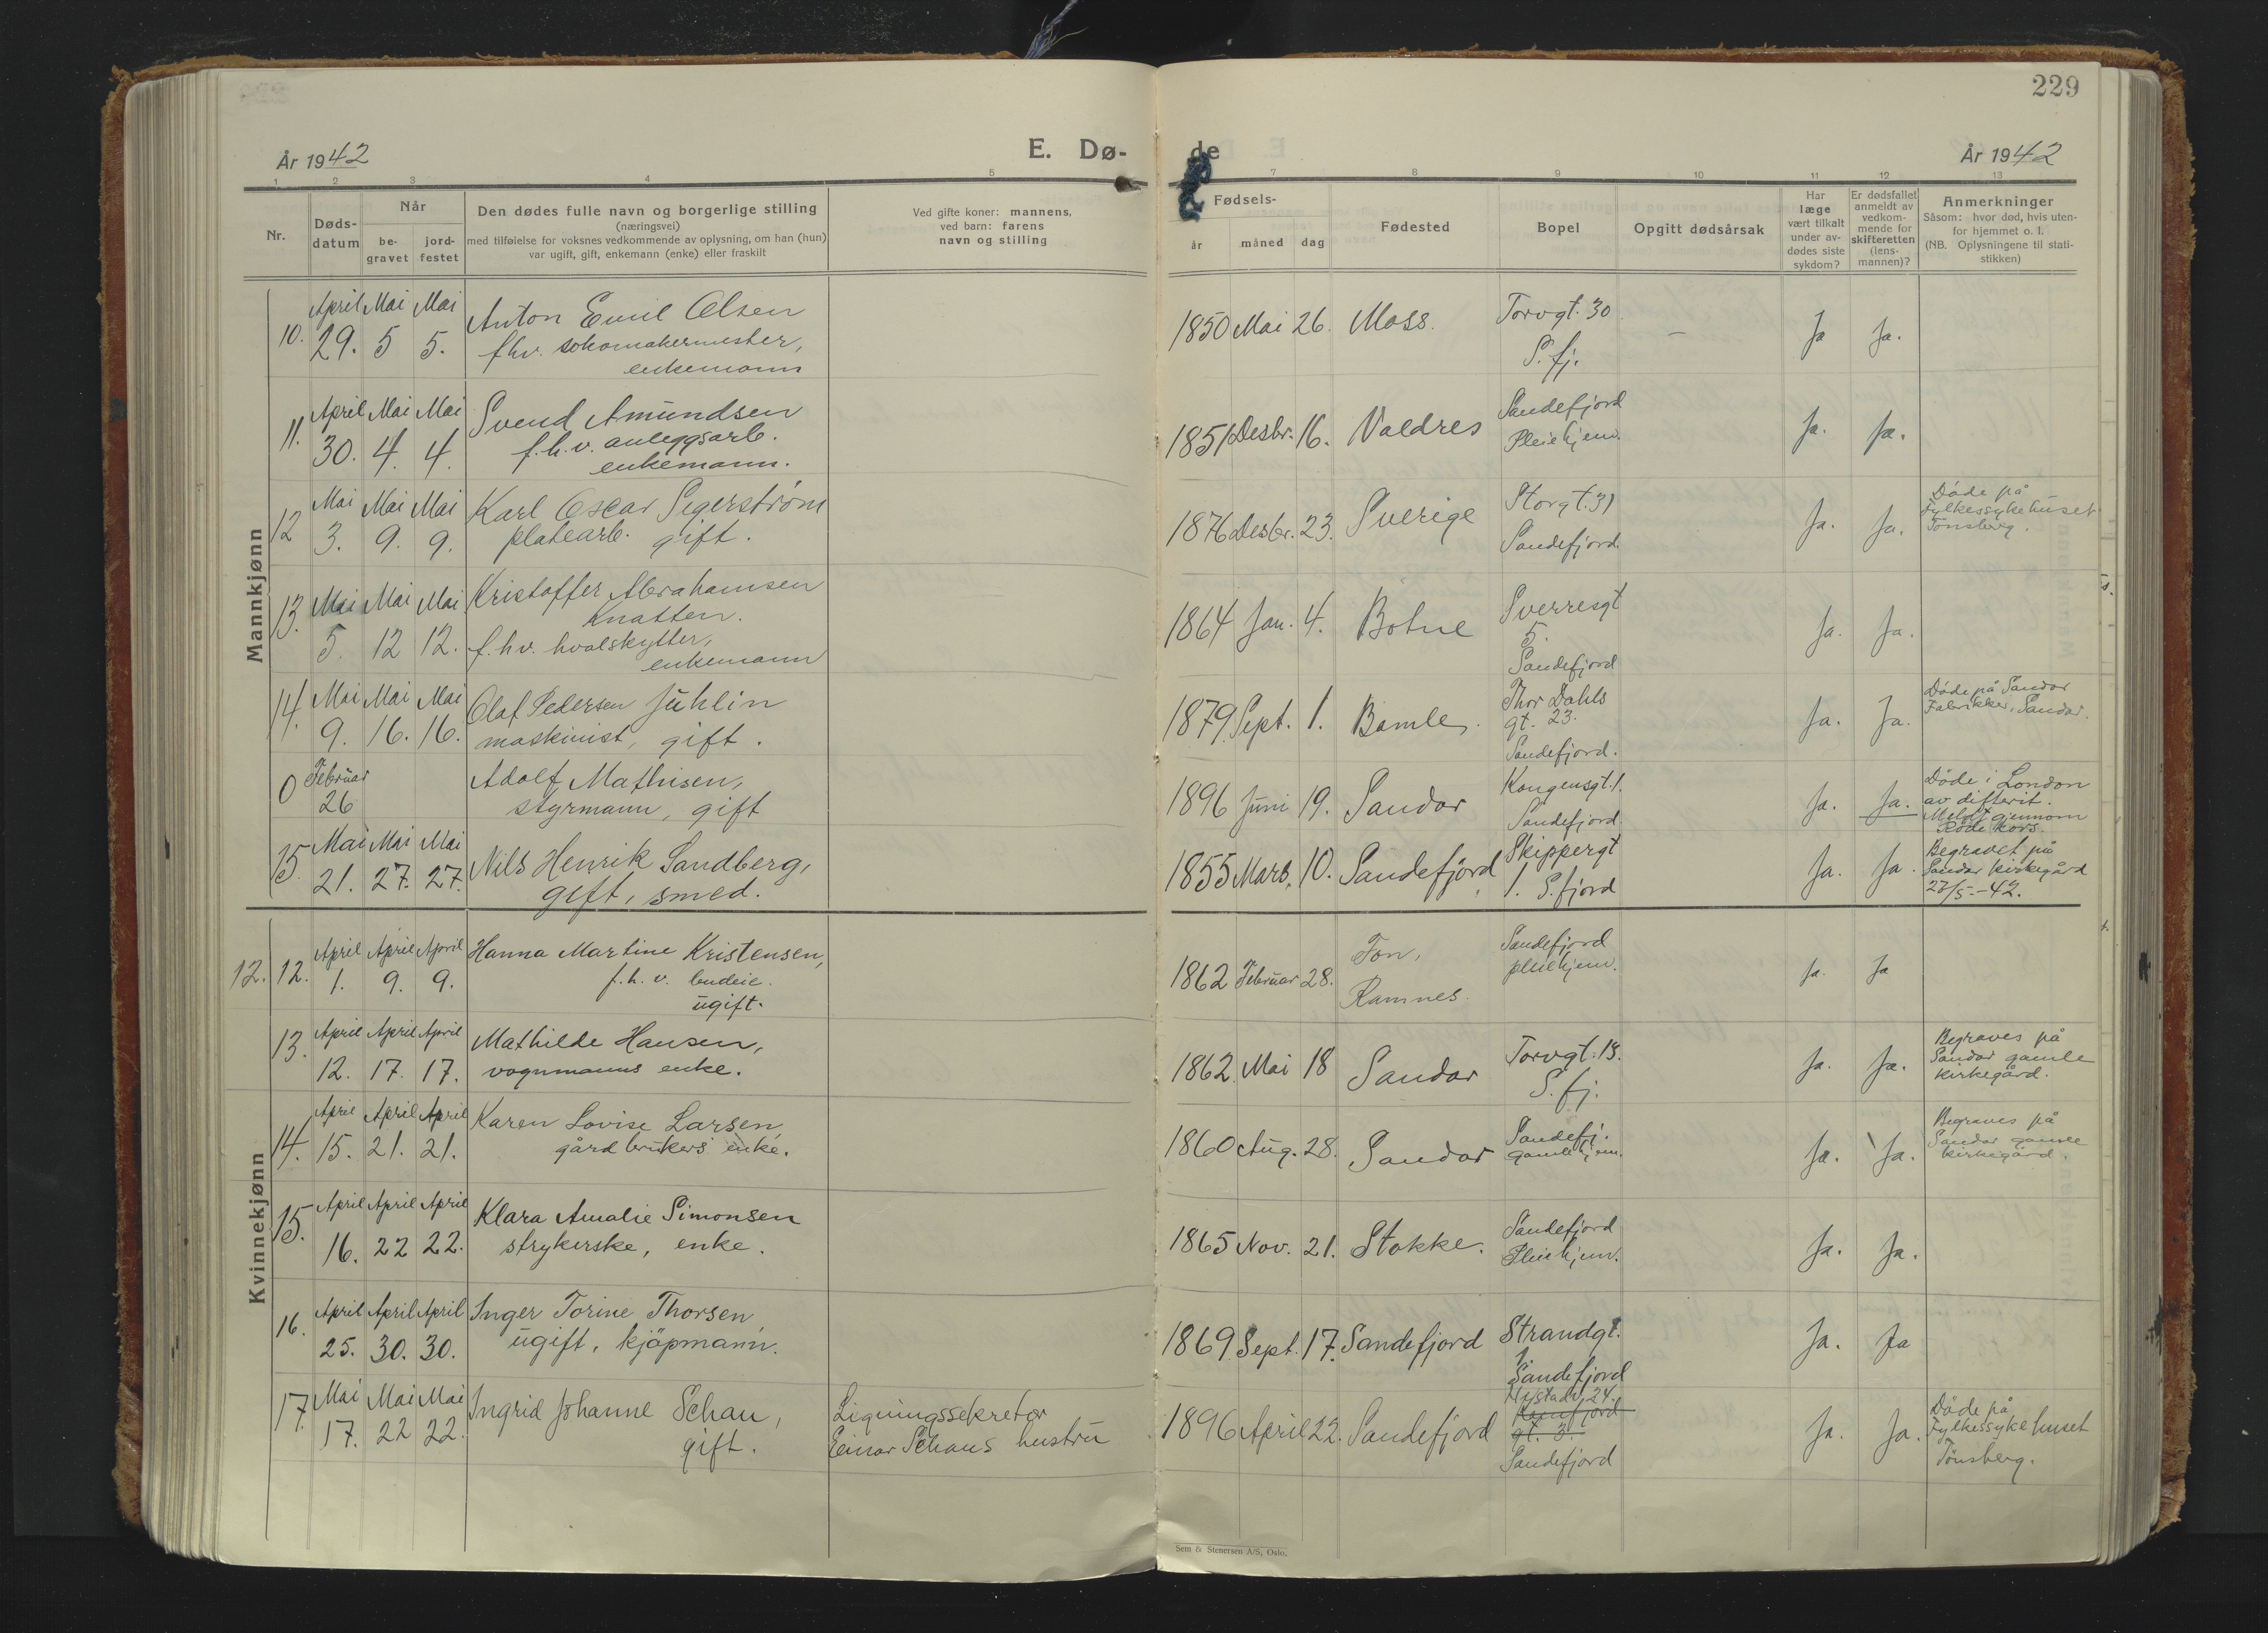 229
År 1942
E. Dø-
de
År 1942
1 2 3 4 5 7 8 9 10 11 12 13
Nr.
Døds-
datum
Når
be-
gravet
jord-
festet
Den dødes fulle navn og borgerlige stilling
(næringsvei)
med tilføielse for voksnes vedkommende av oplysning, om han (hun)
var ugift, gift, enkemann (enke) eller fraskilt
Ved gifte koner: mannens,
ved barn: farens
navn og stilling
Fødsels-
år måned dag
Fødested
Bopel
Opgitt dødsårsak
Har
læge
vært tilkalt
under av-
dødes siste
sykdom?
Er dødsfallet
anmeldt av
vedkom-
mende for
skifteretten
(lens-
mannen)?
Anmerkninger
Såsom: hvor død, hvis uten-
for hjemmet o. l.
(NB. Oplysningene til stati-
stikken)
Mannkjønn
10. April 29. Mai 5 Mai 5. Anton Emil Olsen
fhv. skomakermester,
enkemann
1850 Mai 26. Moss. Torvgt. 30
S.fj.
– Ja Ja.
11. April 30. Mai 4. Mai 4. Svend Amundsen
f.h.v. anleggsarb.
enkemann.
1851 Desbr. 16. Valdres Sandefjord
Pleiehjem.
Ja. Ja.
12 Mai 3. Mai 9. Mai 9. Karl Oscar Segerstrøm
platearb. gift.
1876 Desbr. 23. Sverige Storgt. 31
Sandefjord.
Ja. Ja. Døde på
Fylkessykehuset
Tønsberg.
13. Mai 5. Mai 12 Mai 12. Kristoffer Abrahamsen
Knatten.
f.hv. hvalskytter,
enkemann
1864 Jan. 4. Botne Sverresgt
5.
Sandefjord
Ja. Ja.
14. Mai 9. Mai 16. Mai 16. Olaf Pedersen Juhlin
maskinist, gift.
1879 Sept. 1. Bamle. Thor Dahls
gt. 23.
Sandefjord.
Ja. Ja. Døde på Sandar
Fabrikker, Sandar.
0 Februar 26 Adolf Mathisen,
styrmann, gift
1896 Juni 19. Sandar Kongensgt. 1.
Sandefjord
Ja. Ja. Døde i London
av difterit.
Meldt gjennom
Røde Kors.
15. Mai 21. Mai 27. Mai 27. Nils Henrik Sandberg,
gift, smed.
1855 Mars. 10. Sandefjord Skippergt
1. S.fjord
Ja. Ja. Begravet på
Sandar kirkegård
27/5.-42.
Kvinnekjønn
12. 12. April 1. April 9. April 9. Hanna Martine Kristensen,
f.h.v. budeie.
ugift.
1862 Februar 28. Fon,
Ramnes.
Sandefjord
pleiehjem.
Ja. Ja
13. April 12. April 17. April 17. Mathilde Hansen,
vognmanns enke.
1862. Mai 18 Sandar Torvgt. 18.
S.fj.
Ja. Ja. Begraves på
Sandar gamle
kirkegård.
14. April 15. April 21. April 21. Karen Lovise Larsen
gårdbrukers enke.
1860 Aug. 28. Sandar Sandefj.
gamlehjem.
Ja. Ja. Begraves på
Sandar gamle
kirkegård.
15. April 16. April 22 April 22. Klara Amalie Simonsen
strykerske, enke.
1865 Nov. 21. Stokke. Sandefjord
Pleiehjem.
Ja. Ja.
16. April 25. April 30. April 30. Inger Torine Thorsen
ugift, kjøpmann.
1869 Sept. 17. Sandefjord Strandgt.
1.
Sandefjord
Ja. Ja
17. Mai 17. Mai 22 Mai 22. Ingrid Johanne Schau,
gift.
Ligningssekretær
Einar Schaus hustru
1896 April 22. Sandefjord
24.
gt. 3.
Sandefjord
Ja. Ja. Døde på
Fylkessykehuset
Tønsberg.
Sem & Stenersen A/S, Oslo.